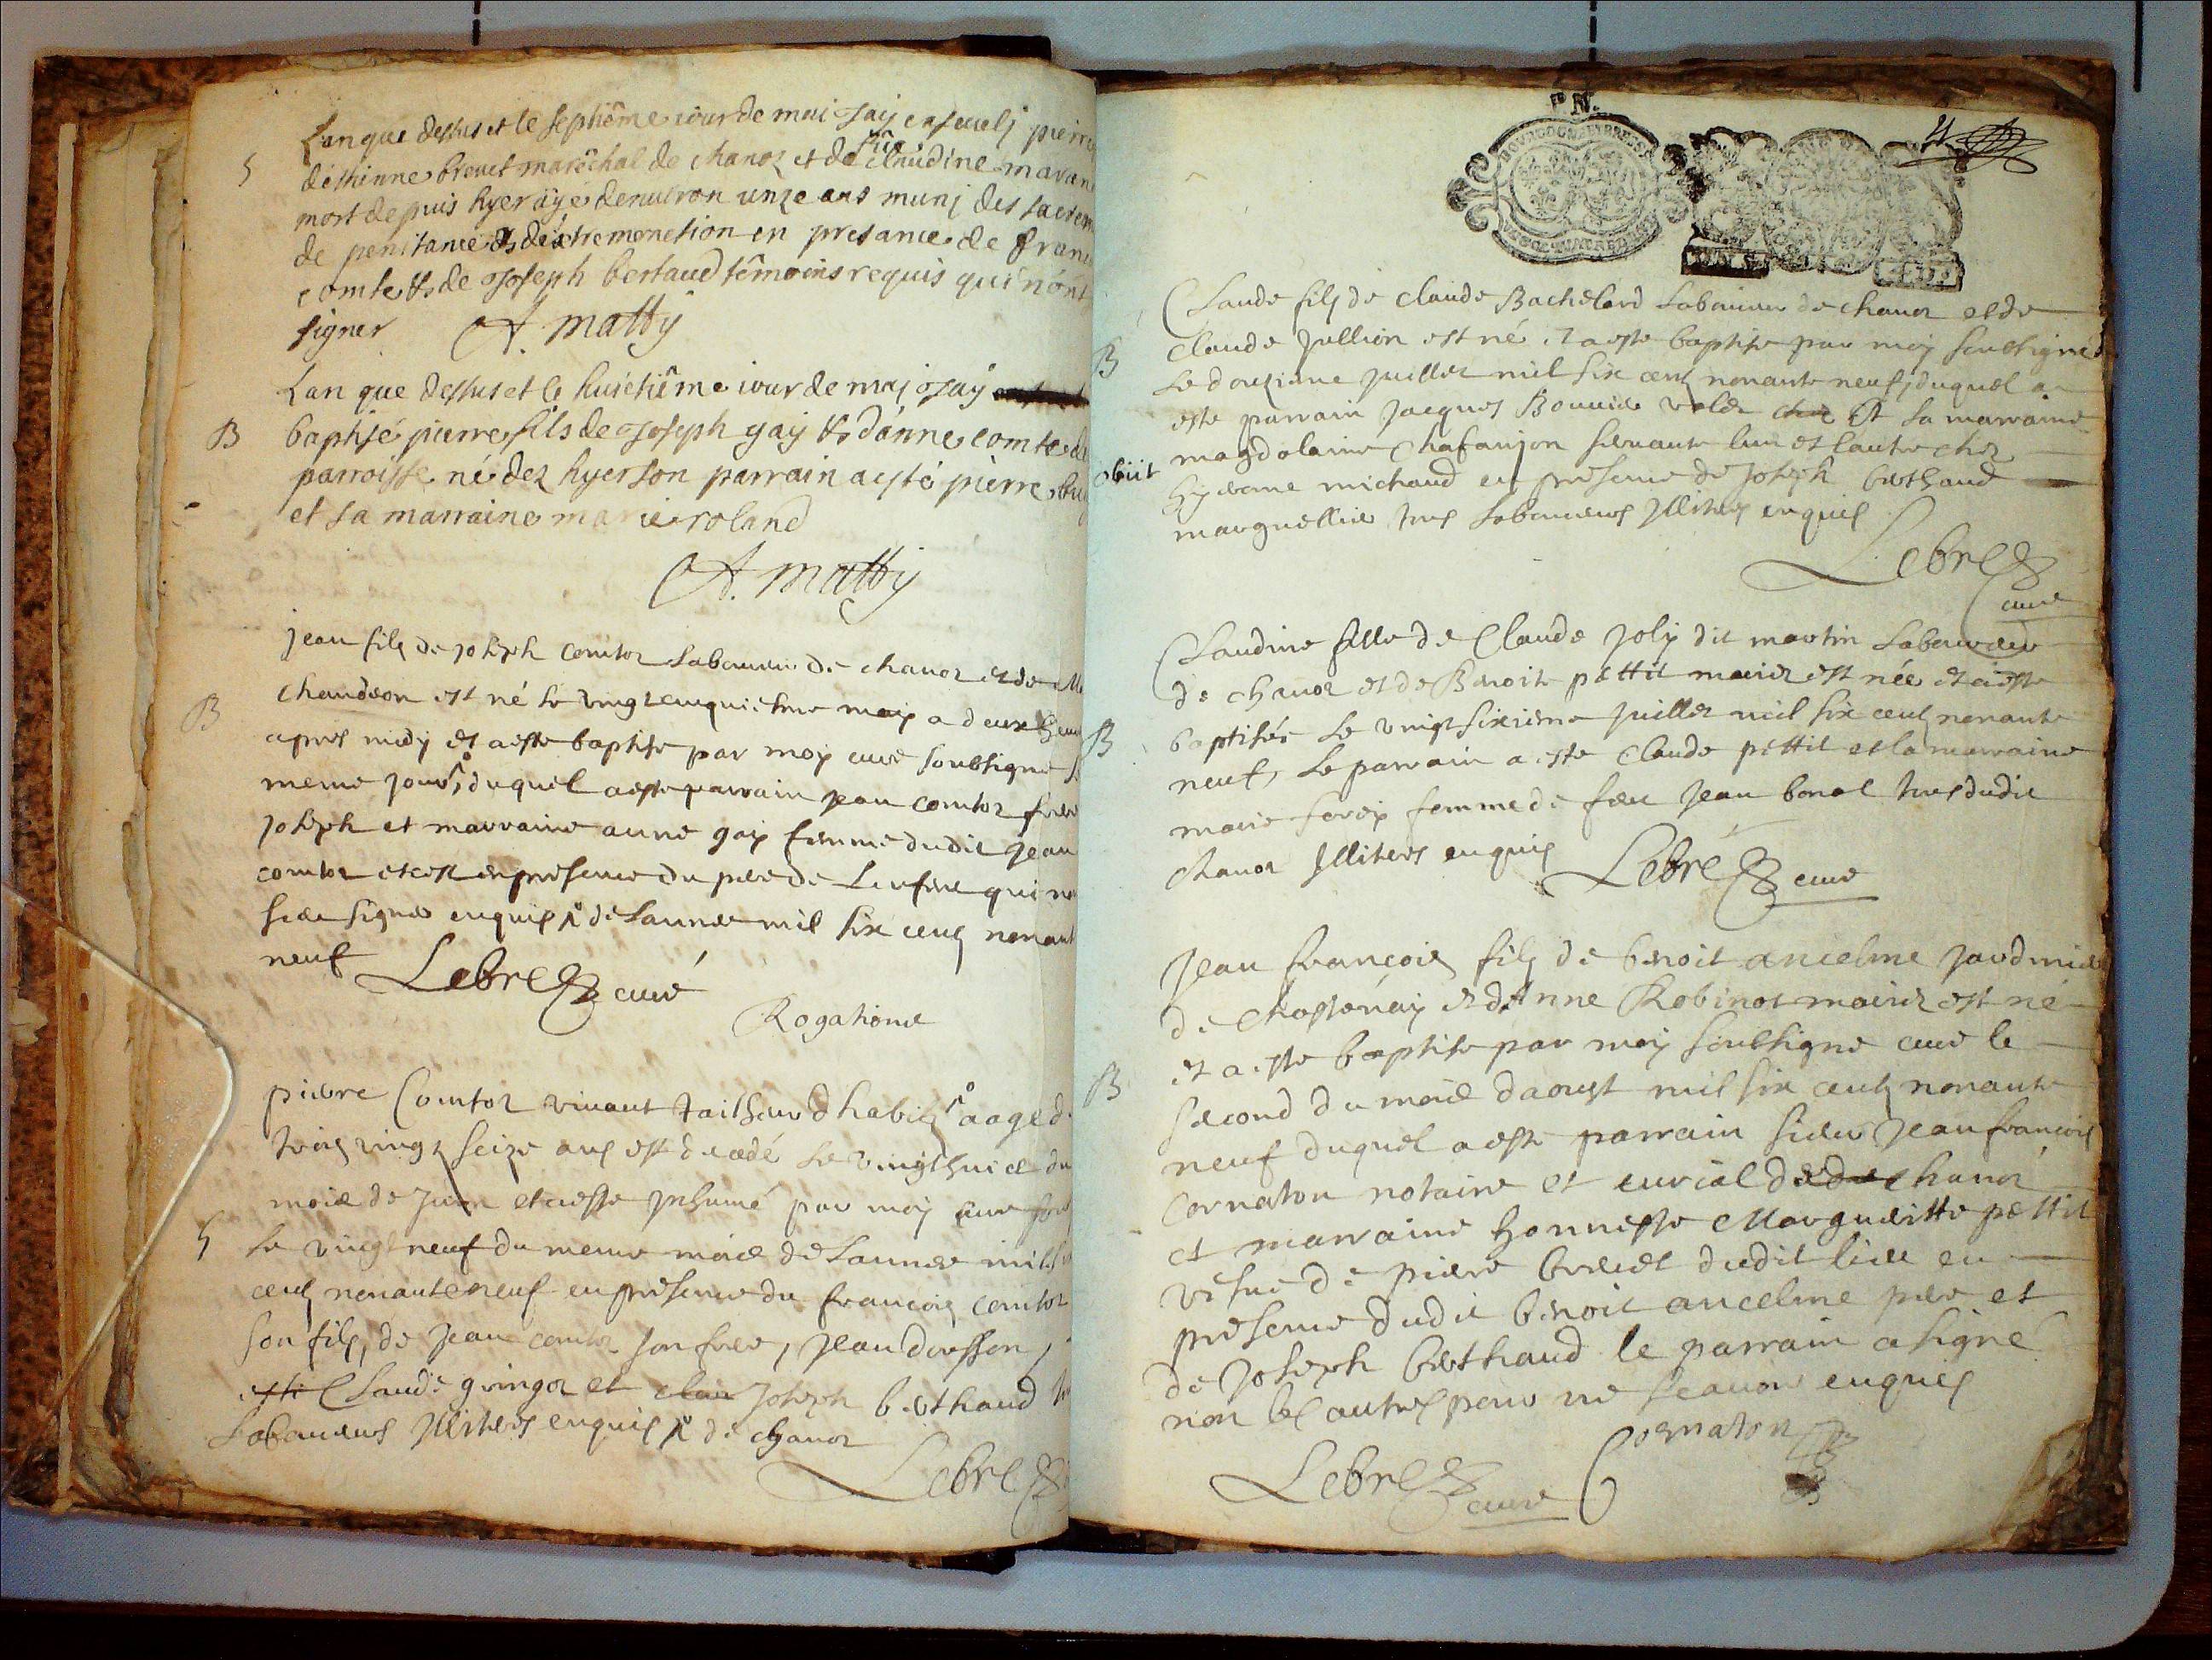 Lan que dessus et le septiême iour de mai Jaÿ enseuelj pierre
S
fils
déthinne breuet marêchal de chanoz et de claudine maran
mort depuis hyer aÿé denuiron unze ans munj des sacrem
de penitance & déxtremonction en presance de fran
comte & de Joseph bertaud têmoins requis qui nónt
signer A. matty
Lan que dessus et le huictiême iour de maj Jaÿ
B
baptisé pierre fils de Joseph gaÿ & dánne comte de
parroisse né dez hyer son parrain a esté pierre
et sa marraine marie roland
A. matty
Jean filz de Joseph comtoz Laboureur de chanoz et de
B
chaudeon est né le vingt cinquiesme may a deux heur
apres midÿ et a este baptise par moy cure soubsigne
meme jour, duquel a este parrain Jean comtoz frere
Joseph et marraine anne gaÿ femme dudit Jean
comtoz et cest en presence du pere de Lenfant qui
scu signer enquis de Lannee mil six centz nonant
neuf Lebre curé
Rogations
pierre Comtoz vivant tailheur dhabitz aage de
trois vingt seize ans est decedé Le vingt huict du
mois de Juin et a este Inhumé par moy cure
S
Le vingt neuf du meme mois de Lannee mil
centz nonante neuf en presence du francois comtoz
son filz, de Jean comtoz son frere, Jean
Claude gringoz et Joseph berthaud
Laboureurs Illiteres enquis de chanoz
Lebre
BOURGOGNE BRESSE
4
Claude filz de Claude Bachelard Laboureur de chanoz et de
B
Claude Jullion est né et a este baptise par moy soubsigné
Le douzieme Juillet mil six centz nonante neuf, duquel a
este parrain Jacques Bouvier valet chez Et La marraine
obiit
magdelaine Chafanjon servante lun et lautre chez
michaud en presence de Joseph berthaud
marguellier tous Laboureurs Illiteres enquis
Lebre
cure
Claudine fille de Claude Joly dit martin Laboureur
de chanoz et de Benoite pettit mariez est née et a este
B
baptisée Le vingt sixieme Juillet mil six centz nonante
neuf, Le parrain a este Claude pettit et la marraine
marie ferey femme de feu Jean bonal tous dudit
chanoz Illiteres enquis Lebre cure
Jean francois filz de benoit ancelme Jardinier
de Chastenay et d'Anne Robinot mariez est né
B
et a este baptise par moy soubsigne cure le
second du mois daoust mil six centz nonante
neuf duquel a este parrain sieur Jean francois
Cornaton notaire et curial de chanoz
et marraine honneste Margueritte pettit
vefue de pierre breuet dudit lieu en
presence dudit benoit ancelme pere et
de Joseph berthaud le parrain a signé
non les autres pour ne scavoir enquis
Cornaton
Lebre cure